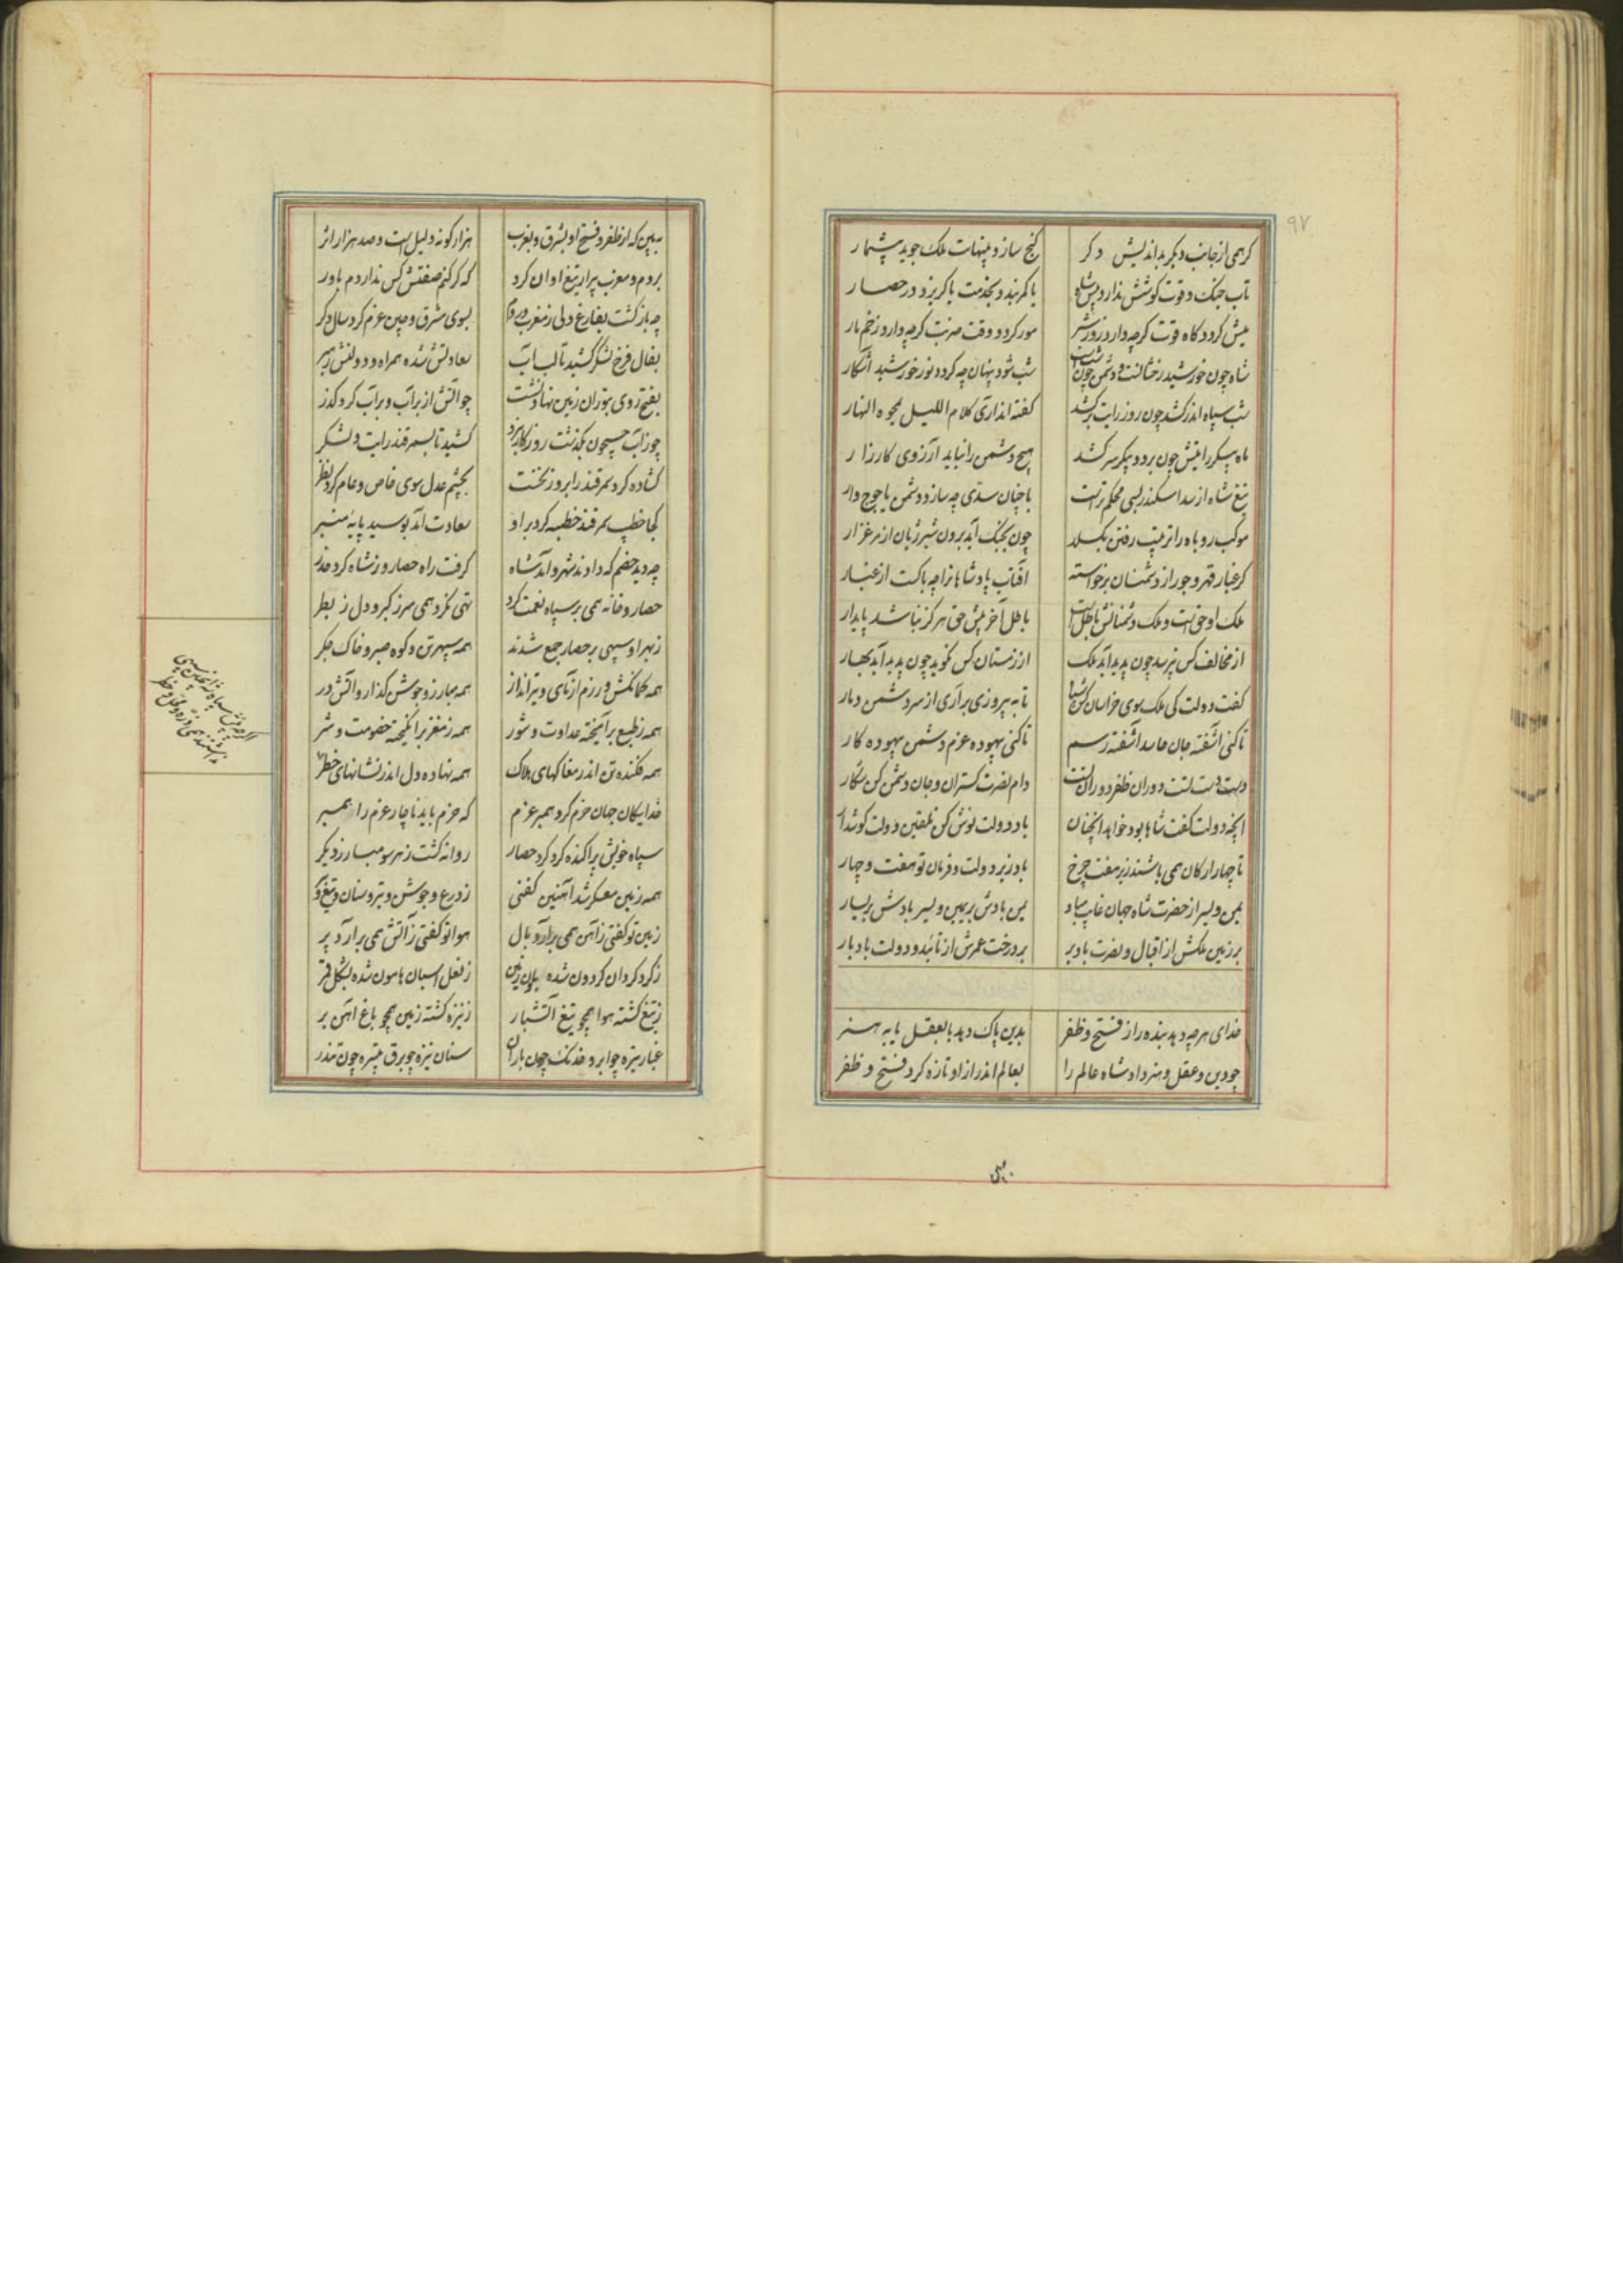 ۹۷
کرهمی از جانب دیگر بداندیش دگر گنج سازد پنهات ملک جوید پشمار
تاب جنگ و قوت کوشش ندارد پیش شاه یا کمر بندد بخدمت یا گریزد در حصار
میش گردد گاه قوت گرچه دارد زور شیر مور گردد وقت ضربت گرچه دارد زخم مار
شاه چون خورشید رخشانست و دشمن چون شبست شب شود پنهان چه گردد نور خورشید آشکار
شب سپاه اندر کشد چون روز رایت برکشد گفته اند آری کلام اللیل یمحوه النهار
ماه پیکر رایتش چون بر دو پیکر سر کشد هیچ دشمن را نیاید آرزوی کارزار
تیغ شاه از سد اسکندر بسی محکم ترست با چنان سدی چه سازد دشمن یاجوج وار
موکب روباه را ترتیب رفتن بگسلد چون بجنگ آید برون شیر ژیان از مرغزار
گر غبار قهر و جور از دشمنان برخواسته آفتاب پادشاهانرا چه باکست از غبار
ملک او حق است و ملک دشمنانش باطل است باطل آخر پیش حق هرگز نباشد پایدار
از مخالف کس نپرسد چون پدید آید ملک از زمستان کس نگوید چون پدید آید بهار
گفت دولت کی ملک سوی خراسان کن شتاب تا به پیروزی براری از سر دشمن دمار
تا کنی آشفته جان حاسد آشفته رسم تا کنی بیهوده عزم دشمن بیهوده کار
دست دست تست و دوران ظفر دوران تست دام نصرت گستران و جان دشمن کن شکار
آنچه دولت گفت شاها بود خواهد آنچنان باده دولت نوش کن تلقین دولت گوشدار
تا چهار ارکان همی باشند زیر هفت چرخ باد زیر دولت و فرمان تو هفت و چهار
یمن و یسر از حضرت شاه جهان غایب مباد یمن بادش بر یمین و یسر بادش بر یسار
بر زمین ملکش از اقبال و نصرت باد بر بر درخت عمرش از تائید و دولت باد بار
خدای هرچه دهد بنده را ز فتح و ظفر بدین پاک دهد یا بعقل یا به هنر
چو دین و عقل و هنر داد شاه عالم را بعالم اندر ازو تازه کرد فتح و ظفر
ببین
ببین که از ظفر و فتح او بشرق و بغرب هزار گونه دلیل است و صد هزار اثر
بروم و مغرب پرار تیغ او ان کرد که گر کنم صفتش کس نداردم باور
چه بازگشت بفارغ دلی ز مغرب و روم بسوی مشرق و چین عزم کرد سال دگر
بفال فرخ لشکر کشید تا لب آب سعادتش شده همراه و دولتش رهبر
بفتح روی بتوران زمین نهاد و نشست چو آتش از بر آب و بر آب کرد گذر
چو زآب جیحون بگذشت روزگار نبرد کشید تا بسمرقند رایت و لشکر
گشاده کرد سمرقند را بروز نخست بچشم عدل سوی خاص و عام کرد نظر
کجا خطیب سمرقند خطبه کرد بر او سعادت آمد بوسید پایه منبر
چه دید خصم که دادند شهر و آمد شاه گرفت راه حصار و ز شاه کرد حذر
حصار و خانه همی بر سپاه نعمت کرد تهی نکرد همی سر ز کبر و دل ز بطر
ز بهر او سپهی بر حصار جمع شدند همه سپهر تن و کوه صبر و خاک جگر
همه کمانکش و رزم آزمای و تیرانداز همه مبارز و جوشن گذار و آتش در
همه ز طبع برآمیخته عداوت و شور همه ز مغز برانگیخته خصومت و شر
همه فکنده تن اندر مغاکهای هلاک همه نهاده دل اندر نشانهای خطر
خدایگان جهان حزم کرد همبر عزم که حزم باید ناچار عزم را همبر
سپاه خویش پراکنده کرد گرد حصار روانه گشت ز هر سو مبارز دیگر
همه زمین معسکر شد آهنین گفتی ز درع و جوشن و تیر و سنان و تیغ و
زمین تو گفتی ز آهن همی برآرد بال هوا تو گفتی ز آتش همی برآرد پر
ز گرد گردان گردون شده بلون زمین ز نعل اسبان هامون شده بشکل قمر
ز تیغ گشته هوا همچو تیغ آتشبار ز نیزه گشته زمین همچو باغ آهن بر
غبار تیره چو ابر و خدنگ چون باران سنان نیزه چو برق تبیره چون تندر